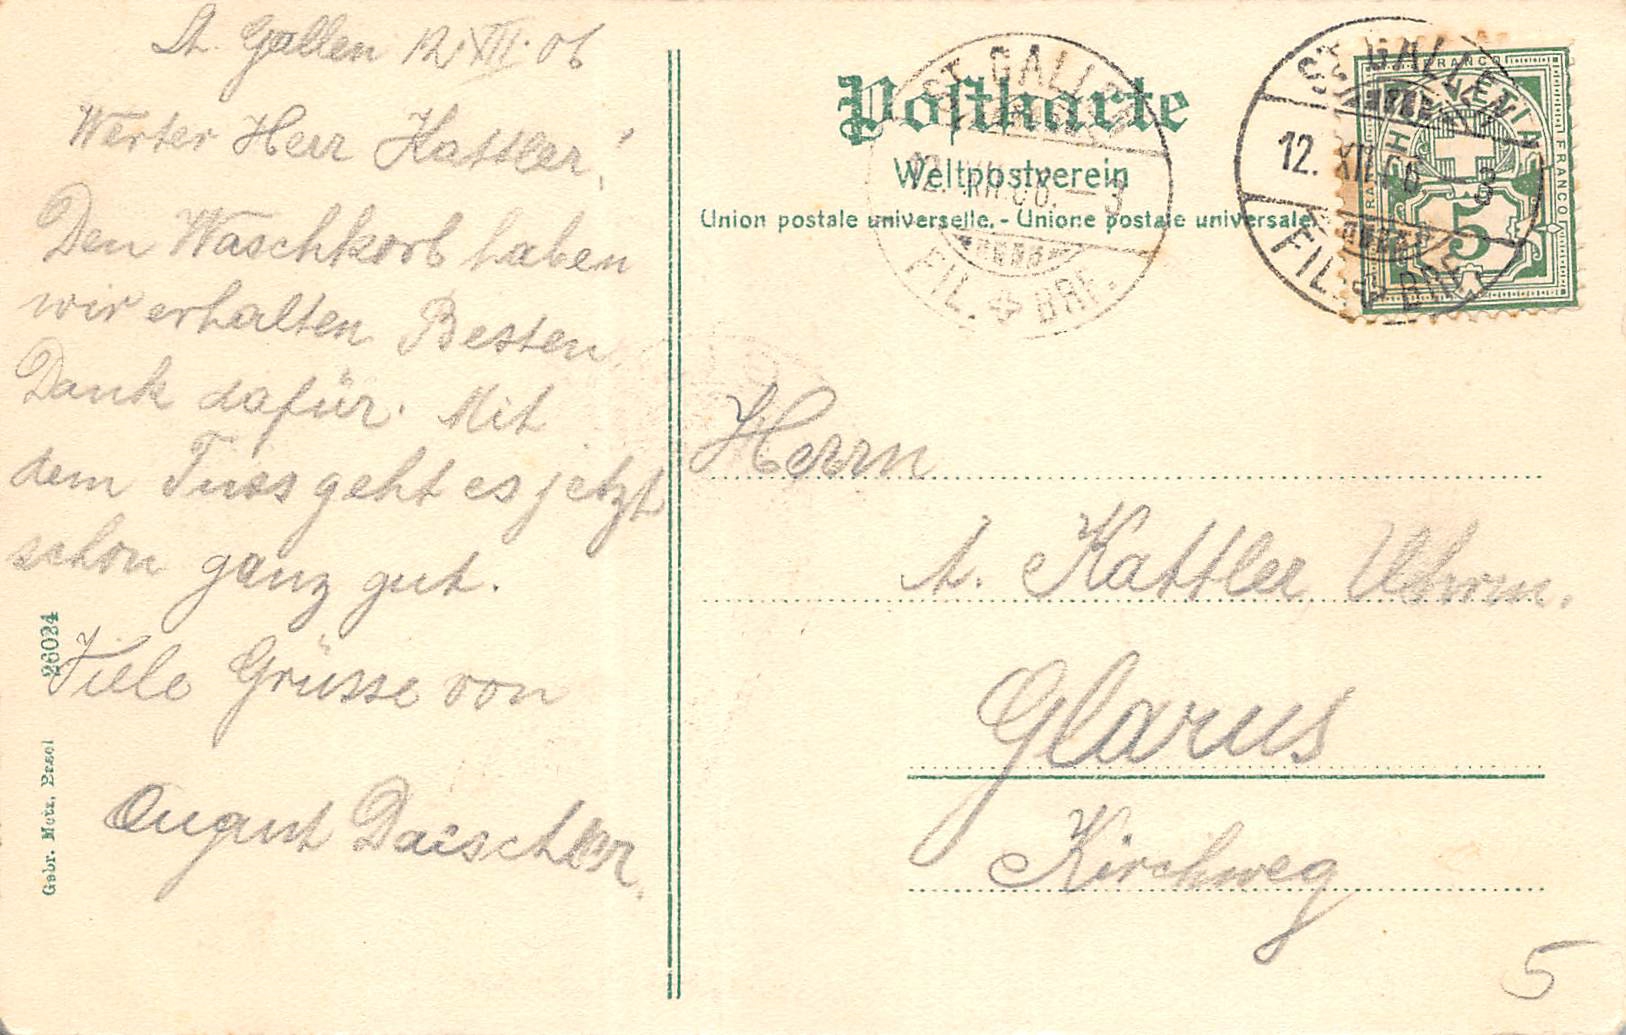 St. Gallen 12. XII. 06
Werter Herr Kattler!
Den Waschkorb haben
wir erhalten Besten
Dank dafür. Mit
dem Fuss geht es jetzt
schon ganz gut.
Viele Grüsse von
August
26024
Gebr. Metz, Basel
Postkarte
Weltpostverein
Union postale universelle. - Unione postale universale.
ST. GALLEN
12. XII. 06. - 3
FIL. BRF.
ST. GALLEN
12. XII. 06 - 3
FIL. BRF.
FRANCO
HELVETIA
FRANCO
FRANCO
5
Herrn
A. Kattler, Uhrm.
Glarus
Kirchweg
5